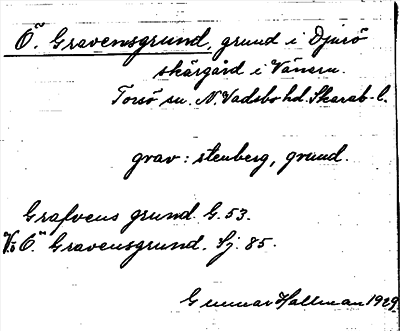 Ö. Gravensgrund, grund i Djurö
skärgård i Vänern.
Torsö sn. N. Vadsbo hd. Skarab. l.
grav: stenberg, grund.
Grafvens grund G. 53.
V. Ö. Gravensgrund. Sj. 85.
Gunnar Hallman 1929